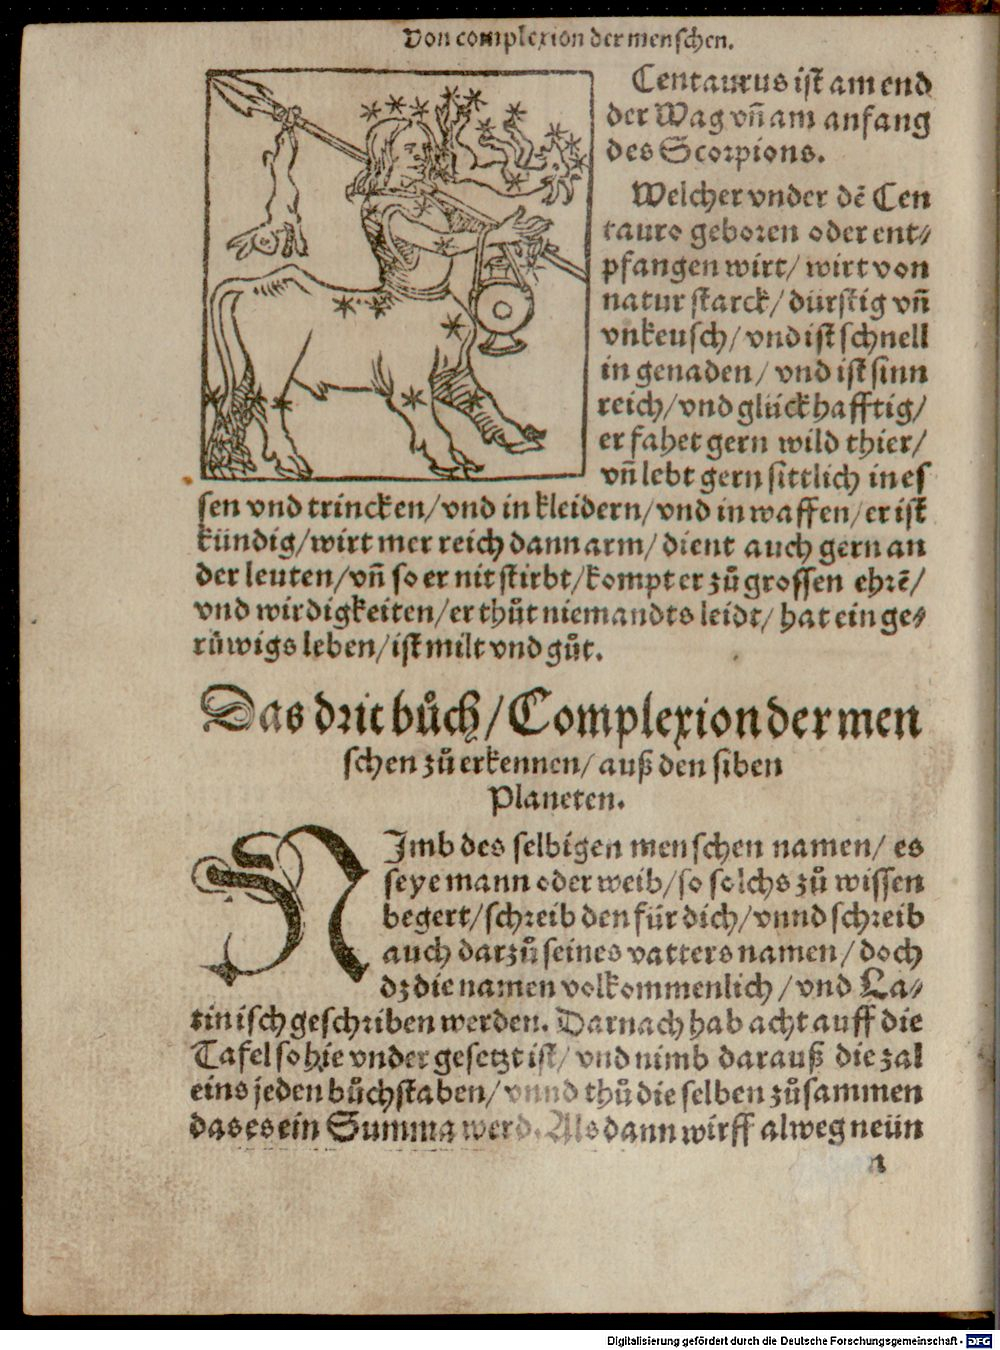 Von complexion der menschen.
Centaurus ist am end
der Wag vñ am anfang
des Scorpions.
Welcher vnder dē Cen
tauro geboren oder ent⸗
pfangen wirt/ wirt von
natur starck/ dürstig vñ
vnkeusch/ vnd ist schnell
in genaden/ vnd ist sinn
reich/ vnd glückhafftig/
er fahet gern wild thier/
vñ lebt gern sittlich in es
sen vnd trincken/ vnd in kleidern/ vnd in waffen/ er ist
kündig/ wirt mer reich dann arm/ dient auch gern an
der leuten/ vñ so er nit stirbt/ kompt er zů grossen ehrē/
vnd wirdigkeiten/ er thůt niemandts leidt/ hat ein ge⸗
růwigs leben/ ist milt vnd gůt.
Das drit bůch/ Complexion der men
schen zů erkennen/ auß den siben
Planeten.
NImb des selbigen menschen namen/ es
seye mann oder weib/ so solchs zů wissen
begert/ schreib den für dich/ vnnd schreib
auch darzů seines vatters namen/ doch
dz die namen volkommenlich/ vnd La⸗
tinisch geschriben werden. Darnach hab acht auff die
Tafel so hie vnder gesetzt ist/ vnd nimb darauß die zal
eins jeden bůchstaben/ vnnd thů die selben zůsammen
das es ein Summa werd. Als dann wirff alweg neün
n
Digitalisierung gefördert durch die Deutsche Forschungsgemeinschaft - DFG